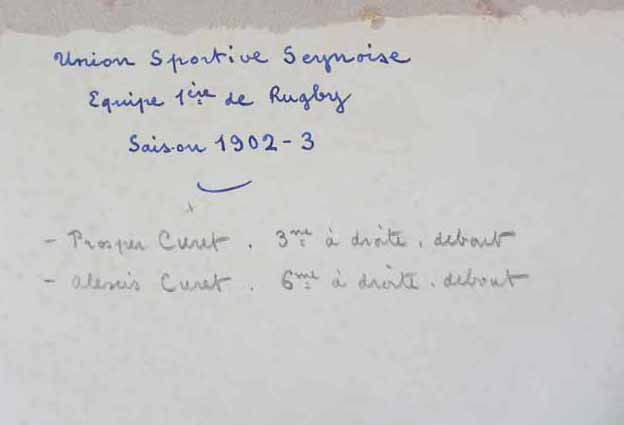 Union Sportive Seynoise
Equipe 1ère de Rugby
Saison 1902-3
- Prosper Curet. 3me à droite, debout
- Alexis Curet. 6me à droite. debout